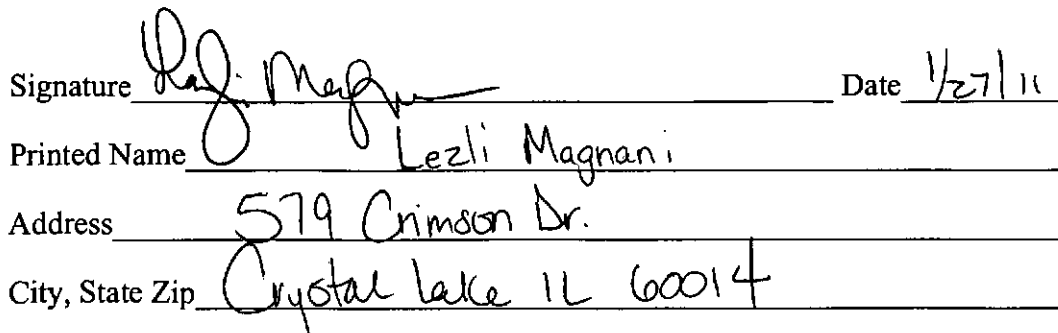 Signature Lezli Magnani Date 1/27/11
Printed Name Lezli Magnani
Address 579 Crimson Dr.
City, State Zip Crystal Lake IL 60014